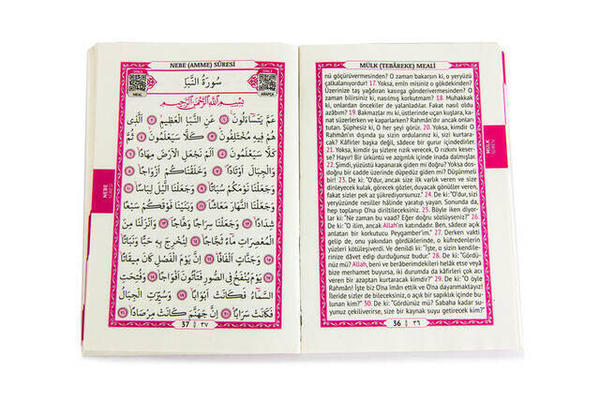 MÜLK (TEBÂREKE) MEALİ
nü göçürüvermesinden? O zaman bakarsın ki, o yeryüzü
çatkalanıyordur! 17. Yoksa, emin misiniz o gökdekinden?
Üzerinize taş yağdıran kasırga gönderivermesinden? O
zaman bilirsiniz ki, nasılmış korkutmam? 18. Muhakkak
ki, onlardan öncekiler de yalanladılar. Fakat nasıl oldu
azâbım? 19. Bakmazlar mı ki, üstlerinde uçan kuşlara, ka-
nat süzerlerken ve çaparlarken? Rahmân'dır ancak onları
tutan. Şüphesiz ki, O her şeyi görür. 20. Yoksa, kimdir O
Rahmân'ın dışında şu sizin ordularınız ki, sizi kurtara-
cak? Kâfirler başka değil, sâdece bir gurur içindedirler.
21. Yoksa, kimdir şu sizlere rızık verecek, O rızkını keser-
se? Hayır! Bir ürküntü ve azgınlık içinde inada dalmışlar.
22. Şimdi, yüzüstü kapanarak giden mi doğru? Yoksa dos-
doğru bir cadde üzerinde düpedüz giden mi? Düşünmeli
bir! 23. De ki: "O'dur, ancak size ilk varlık veren ve size
dinleyecek kulak, görecek gözler, duyacak gönüller veren,
fakat sizler pek az şükrediyorsunuz." 24. De ki: "O'dur, sizi
yeryüzünde nesiller hâlinde yaratıp yayan. Sonunda da,
hep toplanıp O'na dirilticeksiniz. 25. Böyle iken diyor-
lar ki: "Ne zaman bu vaad? Eğer doğru sözlüyseniz?" 26.
De ki: "O ilim, ancak Allah'ın katındadır. Ben, sâdece açık
anlatan bir korkutucu Peygamber'im." 27. Derken vakti
gelip de, onu yakından gördüklerinde, o küfredenlerin
yüzleri kötüleşiverdi. Ve denildi ki: "İşte, o sizin kendile-
rinize dâvet edip durduğunuz budur." 28. De ki: "Gördü-
nüz mü? Allah, beni ve berâberimdekileri helâk etse veyâ
bize merhamet buyursa, iki durumda da kâfirleri çok acı
veren bir azaptan kurtaracak kimdir?" 29. De ki: O öyle
Rahmân! İşte biz O'na îmân ettik ve O'na dayanmaktayız!
İleride sizler de bileceksiniz, o açık bir sapkınlık içinde bu-
lunan kim?" 30. De ki: "Gördünüz mü? Sabaha kadar su-
yunuz çekiliverirse, size bir kaynak suyu getirecek kim?"
36 | ٣٦
MÜLK
NEBE (AMME) SÛRESİ
سُورَةُ النَّبَأِ
MEAL
ARAPÇA
بِسْمِ اللّٰهِ الرَّحْمٰنِ الرَّحٖيمِ
عَمَّ يَتَسَٓاءَلُونَ ﴿١﴾ عَنِ النَّبَاِ الْعَظٖيمِ ﴿٢﴾ اَلَّذٖى
هُمْ فٖيهِ مُخْتَلِفُونَ ﴿٣﴾ كَلَّا سَيَعْلَمُونَ ﴿٤﴾ ثُمَّ
كَلَّا سَيَعْلَمُونَ ﴿٥﴾ اَلَمْ نَجْعَلِ الْاَرْضَ مِهَادًا ﴿٦﴾
وَالْجِبَالَ اَوْتَادًا ﴿٧﴾ وَخَلَقْنَاكُمْ اَزْوَاجًا ﴿٨﴾
وَجَعَلْنَا نَوْمَكُمْ سُبَاتًا ﴿٩﴾ وَجَعَلْنَا الَّيْلَ لِبَاسًا ﴿١٠﴾
وَجَعَلْنَا النَّهَارَ مَعَاشًا ﴿١١﴾ وَبَنَيْنَا فَوْقَكُمْ سَبْعًا
شِدَادًا ﴿١٢﴾ وَجَعَلْنَا سِرَاجًا وَهَّاجًا ﴿١٣﴾ وَاَنْزَلْنَا مِنَ
الْمُعْصِرَاتِ مَٓاءً ثَجَّاجًا ﴿١٤﴾ لِنُخْرِجَ بِهٖ حَبًّا وَنَبَاتًا ﴿١٥﴾
وَجَنَّاتٍ اَلْفَافًا ﴿١٦﴾ اِنَّ يَوْمَ الْفَصْلِ كَانَ مٖيقَاتًا
﴿١٧﴾ يَوْمَ يُنْفَخُ فِى الصُّورِ فَتَأْتُونَ اَفْوَاجًا ﴿١٨﴾ وَفُتِحَتِ
السَّمَٓاءُ فَكَانَتْ اَبْوَابًا ﴿١٩﴾ وَسُيِّرَتِ الْجِبَالُ
فَكَانَتْ سَرَابًا ﴿٢٠﴾ اِنَّ جَهَنَّمَ كَانَتْ مِرْصَادًا ﴿٢١﴾
37 | ٣٧
NEBE